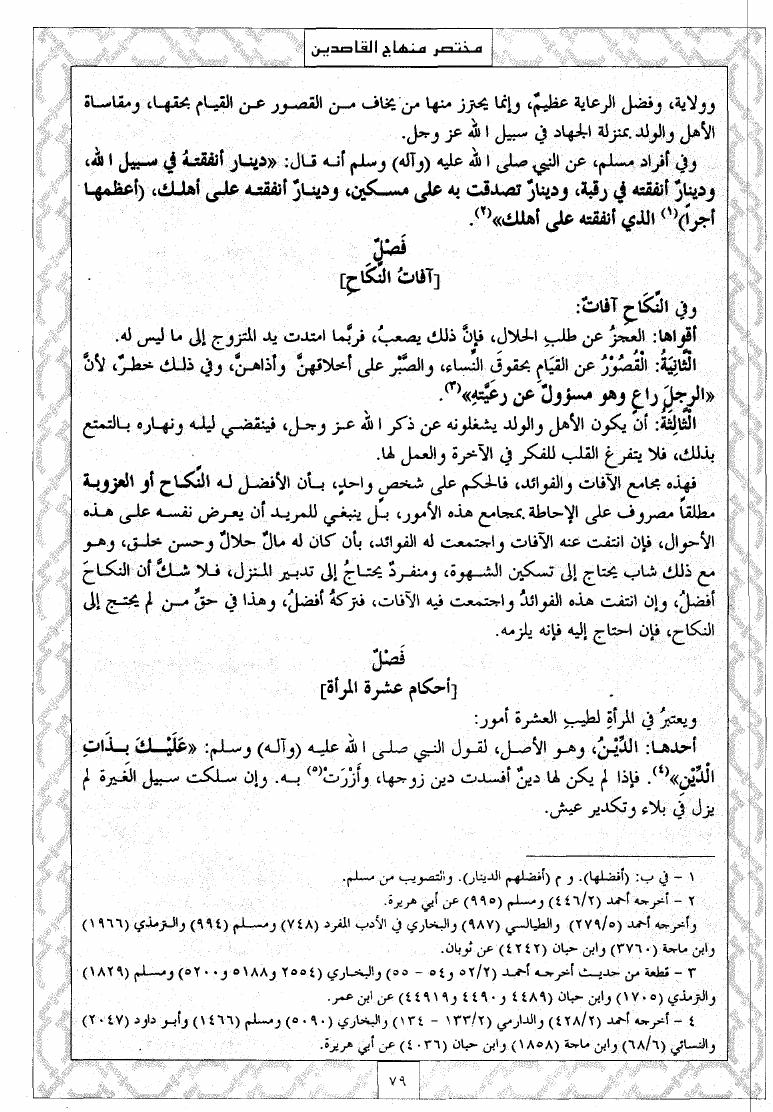 مختصر منهاج القاصدين
وولاية، وفضل الرعاية عظيمٌ، وإنما يحترز منها من يخاف من القصور عن القيام بحقها، ومقاساة
الأهل والولد بمنزلة الجهاد في سبيل الله عز وجل.
وفي أفراد مسلم، عن النبي صلى الله عليه (وآله) وسلم أنه قال: «دينار أنفقتهُ في سبيل الله،
ودينارٌ أنفقته في رقبة، ودينارٌ تصدقت به على مسكين، ودينارٌ أنفقته على أهلك، (أعظمها
أجراً)(١) الذي أنفقته على أهلك»(٢).
فَصْلٌ
[آفاتُ النِّكَاحِ]
وفي النِّكَاحِ آفاتٌ:
أقواها: العجزُ عن طلبِ الحلال، فإنَّ ذلك يصعبُ، فربَّما امتدت يد المتزوج إلى ما ليس له.
الْثَّانِيَةُ: الْقُصُوْرُ عن القيَامِ بحقوقِ النِّساء، والصَّبْر على أخلاقهنَّ وأذاهنَّ، وفي ذلك خطرٌ، لأنَّ
«الرجلَ راعٍ وهو مسؤولٌ عن رعيَّتهِ»(٣).
الْثَّالِثَةُ: أن يكون الأهل والولد يشغلونه عن ذكر الله عز وجل، فينقضي ليله ونهاره بالتمتع
بذلك، فلا يتفرغ القلب للفكر في الآخرة والعمل لها.
فهذه مجامع الآفات والفوائد، فالحكم على شخصٍ واحدٍ، بأن الأفضل له النكاح أو العزوبة
مطلقاً مصروف على الإحاطة بمجامع هذه الأمور، بل ينبغي للمريد أن يعرض نفسه على هذه
الأحوال، فإن انتفت عنه الآفات واجتمعت له الفوائد، بأن كان له مالٌ حلالٌ وحسن خلق، وهو
مع ذلك شاب يحتاج إلى تسكين الشهوة، ومنفردٌ يحتاجُ إلى تدبير المنزل، فلا شكَّ أن النكاحَ
أفضلُ، وإن انتفت هذه الفوائدُ واجتمعت فيه الآفات، فتركهُ أفضلُ، وهذا في حقِّ من لم يحتج إلى
النكاح، فإن احتاج إليه فإنه يلزمه.
فَصْلٌ
[أحكام عشرة المرأة]
ويعتبرُ في المرأةِ لطيبِ العشرة أمور:
أحدها: الدِّيْنُ، وهو الأصل، لقول النبي صلى الله عليه (وآله) وسلم: «عَلَيْكَ بِذَاتِ
الْدِّيْنِ»(٤). فإذا لم يكن لها دينٌ أفسدت دين زوجها، وأَزْرَتْ(٥) به. وإن سلكت سبيل الغيرة لم
يزل في بلاء وتكدير عيش.
١ - في ب: (أفضلها). و م (أفضلهم الدينار). والتصويب من مسلم.
٢ - أخرجه أحمد (٤٤٦/٢) ومسلم (٩٩٥) عن أبي هريرة.
وأخرجه أحمد (٢٧٩/٥) والطيالسي (٩٨٧) والبخاري في الأدب المفرد (٧٤٨) ومسلم (٩٩٤) والترمذي (١٩٦٦)
وابن ماجة (٣٧٦٠) وابن حبان (٤٢٤٢) عن ثوبان.
٣ - قطعة من حديث أخرجه أحمد (٥٢/٢ و٥٤ - ٥٥) والبخاري (٢٥٥٤ و٥١٨٨ و٥٢٠٠) ومسلم (١٨٢٩)
والترمذي (١٧٠٥) وابن حبان (٤٤٨٩ و٤٤٩٠ و٤٤٩١٩) عن ابن عمر.
٤ - أخرجه أحمد (٤٢٨/٢) والدارمي (١٣٣/٢ - ١٣٤) والبخاري (٥٠٩٠) ومسلم (١٤٦٦) وأبو داود (٢٠٤٧)
والنسائي (٦٨/٦) وابن ماجة (١٨٥٨) وابن حبان (٤٠٣٦) عن أبي هريرة.
٧٩